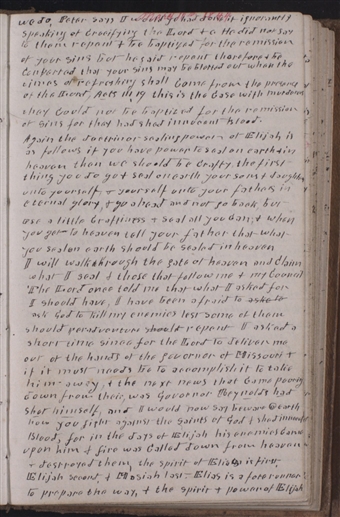 we do, Peter says I ignorantly
Speaking of Crucifying the Lord & a He did not say
to them repent & be baptized for the remission
of your sins but he said repent therefore & be
Converted that your sins may be blotted out when the
times of refreshing shall Come from the presence
of the Lord, Acts III, 19 this is the Case with murderers
they Could not be baptized for the remission
of sins for they had shed innocent blood.
Again the doctrin or sealing power of Elijah is
as follows if you have power to seal on earth & in
heaven then we should be Crafty, the first
thing you do go & seal on earth your sons & daughters
unto yourself, & yourself unto your fathers in
eternal glory, & go ahead and not go back but
use a little Craftiness & seal all you Can, & when
you get to heaven tell your father that what
you seal on earth should be sealed in heaven
I will walk through the gate of heaven and Claim
what I seal & those that follow me & my Council
The Lord once told me that what I asked for
I should have, I have been afraid to
ask God to kill my enemies lest some of them
should peradventure should repent I asked a
short time since for the Lord to deliver me
out of the hands of the Governor of Missouri &
if it must needs be to accomplish it to take
him away, & the next news that Came pouring
down from their, was Governor Reynolds had
shot himself, and I would now say beware O earth
how you fight against the saints of God & shed innocent
Blood, for in the days of Elijah his enemies Came
upon him & fire was Called down from heaven
& destroyed them, the spirit of Elias is first,
Elijah second, & Mesiah last = Elias is a forerunner
to prepare the way, & the spirit & power of Elijah